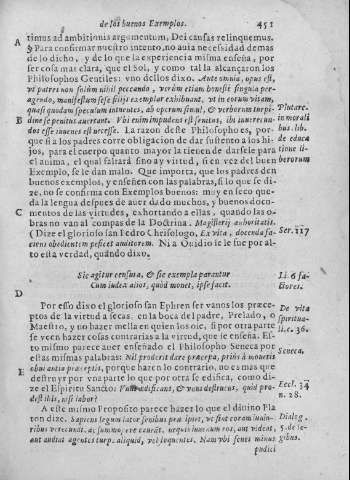 de los buenos Exemplos.
451
A
timus ad ambitionis argumentum, Dei causas relinquemus.
§ Para confirmar nuestro intento, no auia necessidad demas
de lo dicho, y de lo que la experiencia misma enseña, por
ser cosa mas clara, que el Sol, y como tal la alcançaron los
Philosophos Gentiles: vno dellos dixo. Ante omnia, opus est,
vt patres non solùm nihil peccando, verùm etiam honestè singula per-
agendo, manifestum sese filijs exemplar exhibeant, vt in eorum vitam,
quasi quoddam speculum intuentes, ab operum simul, & verborum turpi-
dine se penitus auertant. Vbi enim impudens est senitus, ibi inuerecun-
dos esse iuuenes est necesse. La razon deste Philosopho es, por-
que si a los padres corre obligacion de dar sustento a los hi-
jos, para el cuerpo quanto mayor la tienen de darsele para
el anima, el qual faltará sino ay virtud, si en vez del buen
Exemplo, se le dan malo. Que importa, que los padres den
buenos exemplos, y enseñen con las palabras, si lo que se di-
ze, no se confirma con Exemplos buenos: muy en seco que-
da la lengua despues de auer dado muchos, y buenos docu-
mentos de las virtudes, exhortando a ellas, quando las o-
bras no van al compas de la Doctrina. Magisterij authoritatem
(Dize el glorioso san Pedro Chrisologo, Ex vita, docenda fa-
ciens obedientem perficit auditorem. Ni a Ouidio se le fue por al-
to esta verdad, quándo dixo.
B
C
Plutarc.
in morali
bus. lib.
de educa
tione li-
berorum
Ser. 117
Sic agitur censura, & sic exempla parantur
Cum iudex alios, quòd monet, ipse facit.
Li. 6 fa-
stores.
D
Por esso dixo el glorioso san Ephren ser vanos los præce-
ptos de la virtud a secas en la boca del padre, Prelado, o
Maestro, y no hazer mella en quien los oie, si por otra parte
se veen hazer cosas contrarias a la virtud, que se enseña. Es-
to mismo parece auer enseñado el Philosopho Seneca por
estas mismas palabras: Nil proderit dare præcepta, prius à
obui antia præceptis, porque hazen lo contrario, no es mas que
destruyr por vna parte lo que por otra se edifica, como di-
ze el Espiritu Sancto: Vnus edificans, & vnus destruens, quid pro-
dest ibis, nisi labor?
De vita
spiritua-
li. c. 36.
Seneca.
E
Eccl. 34
n. 28.
A este mismo Proposito parece hazer lo que el diuino Pla
ton dize. Sapiens legum lator senibus præcipiet, vt
ribus verecundè, ac summopere caueãt, nequis iuuenum nos, aut videat,
aut audiat agentes turpe aliquid, vel loquentes. Nam vbi senes minus
pudici
Dialog.
5. de le-
gibus.